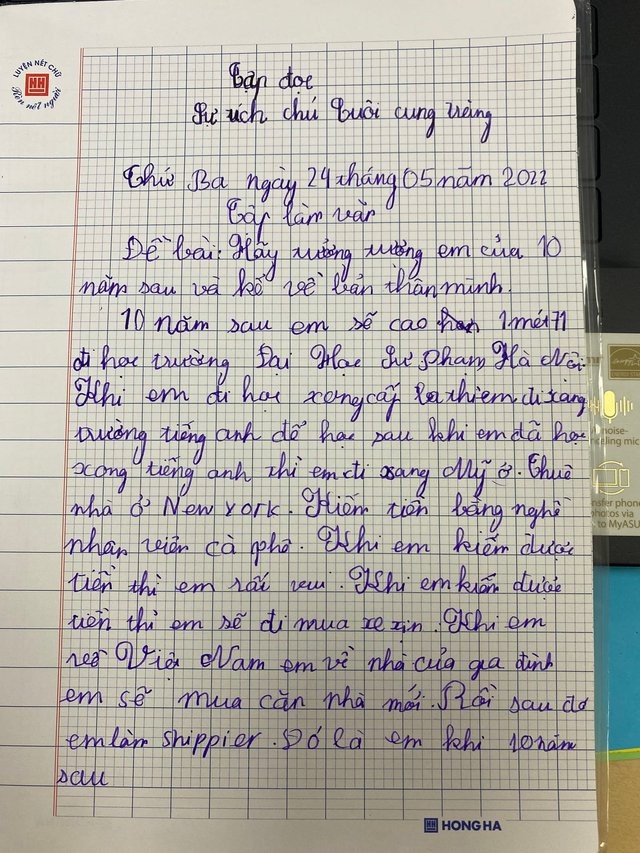 LUYỆN NÉT CHỮ
HH
Rèn nết người
Tập đọc
Sự tích chú Cuội cung trăng
Thứ Ba ngày 24 tháng 05 năm 2022
Tập làm văn
Đề bài: Hãy tưởng tượng em của 10
năm sau và kể về bản thân mình.
10 năm sau em sẽ cao 1 mét 71
đi học trường Đại Học Sư Phạm Hà Nội.
Khi em đi học xong cấp thì em đi xang
trường tiếng anh để học sau khi em đã học
xong tiếng anh thì em đi xang Mỹ ở. Thuê
nhà ở New york. Kiếm tiền bằng nghề
nhân viên cà phê. Khi em kiếm được
tiền thì em rất vui. Khi em kiếm được
tiền thì em sẽ đi mua xe xịn. Khi em
về Việt Nam em về nhà của gia đình
em sẽ mua căn nhà mới. Rồi sau đó
em làm shippier. Đó là em khi 10 năm
sau
HH HONG HA
noise-
celing mic
nsfer phone
photos via
to MyASU